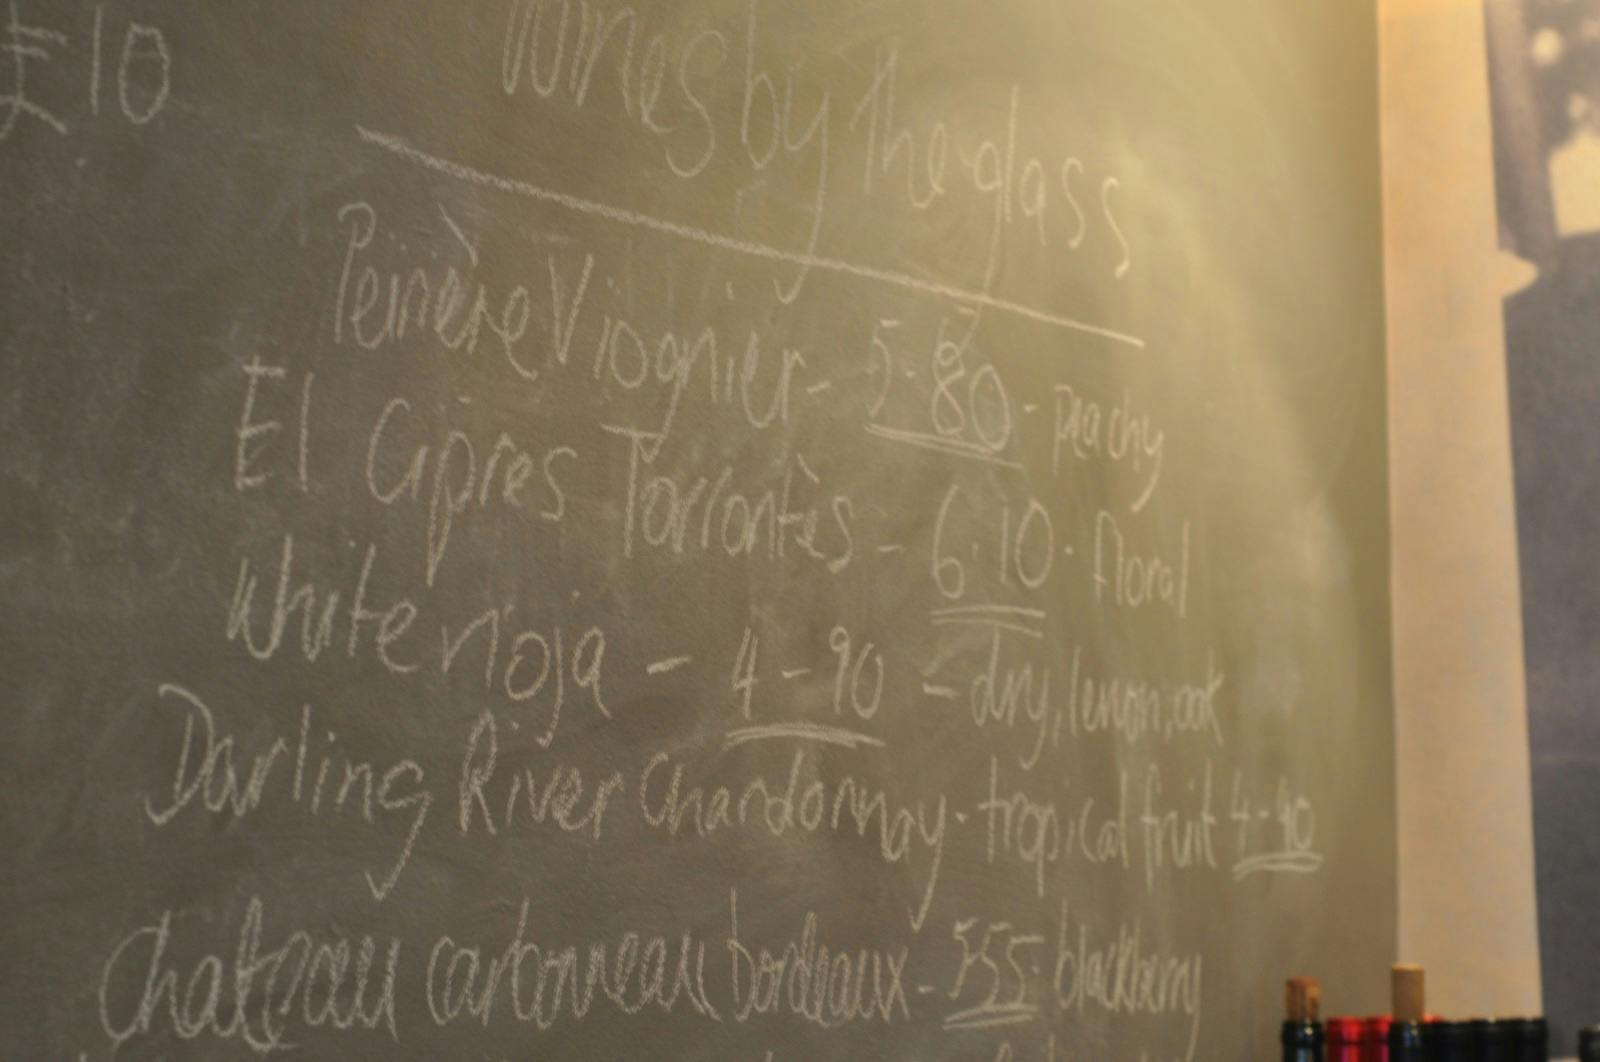 £10
Wines by The glass
Peirière Viognier - 5-80 - peachy
El Cipres Torrontès - 6·10 · floral
White rioja - 4-90 - dry, lemon, oak
Darling River Chardonnay · tropical fruit 4-90
Chateau carbonneau bordeaux - 555 · blackberry